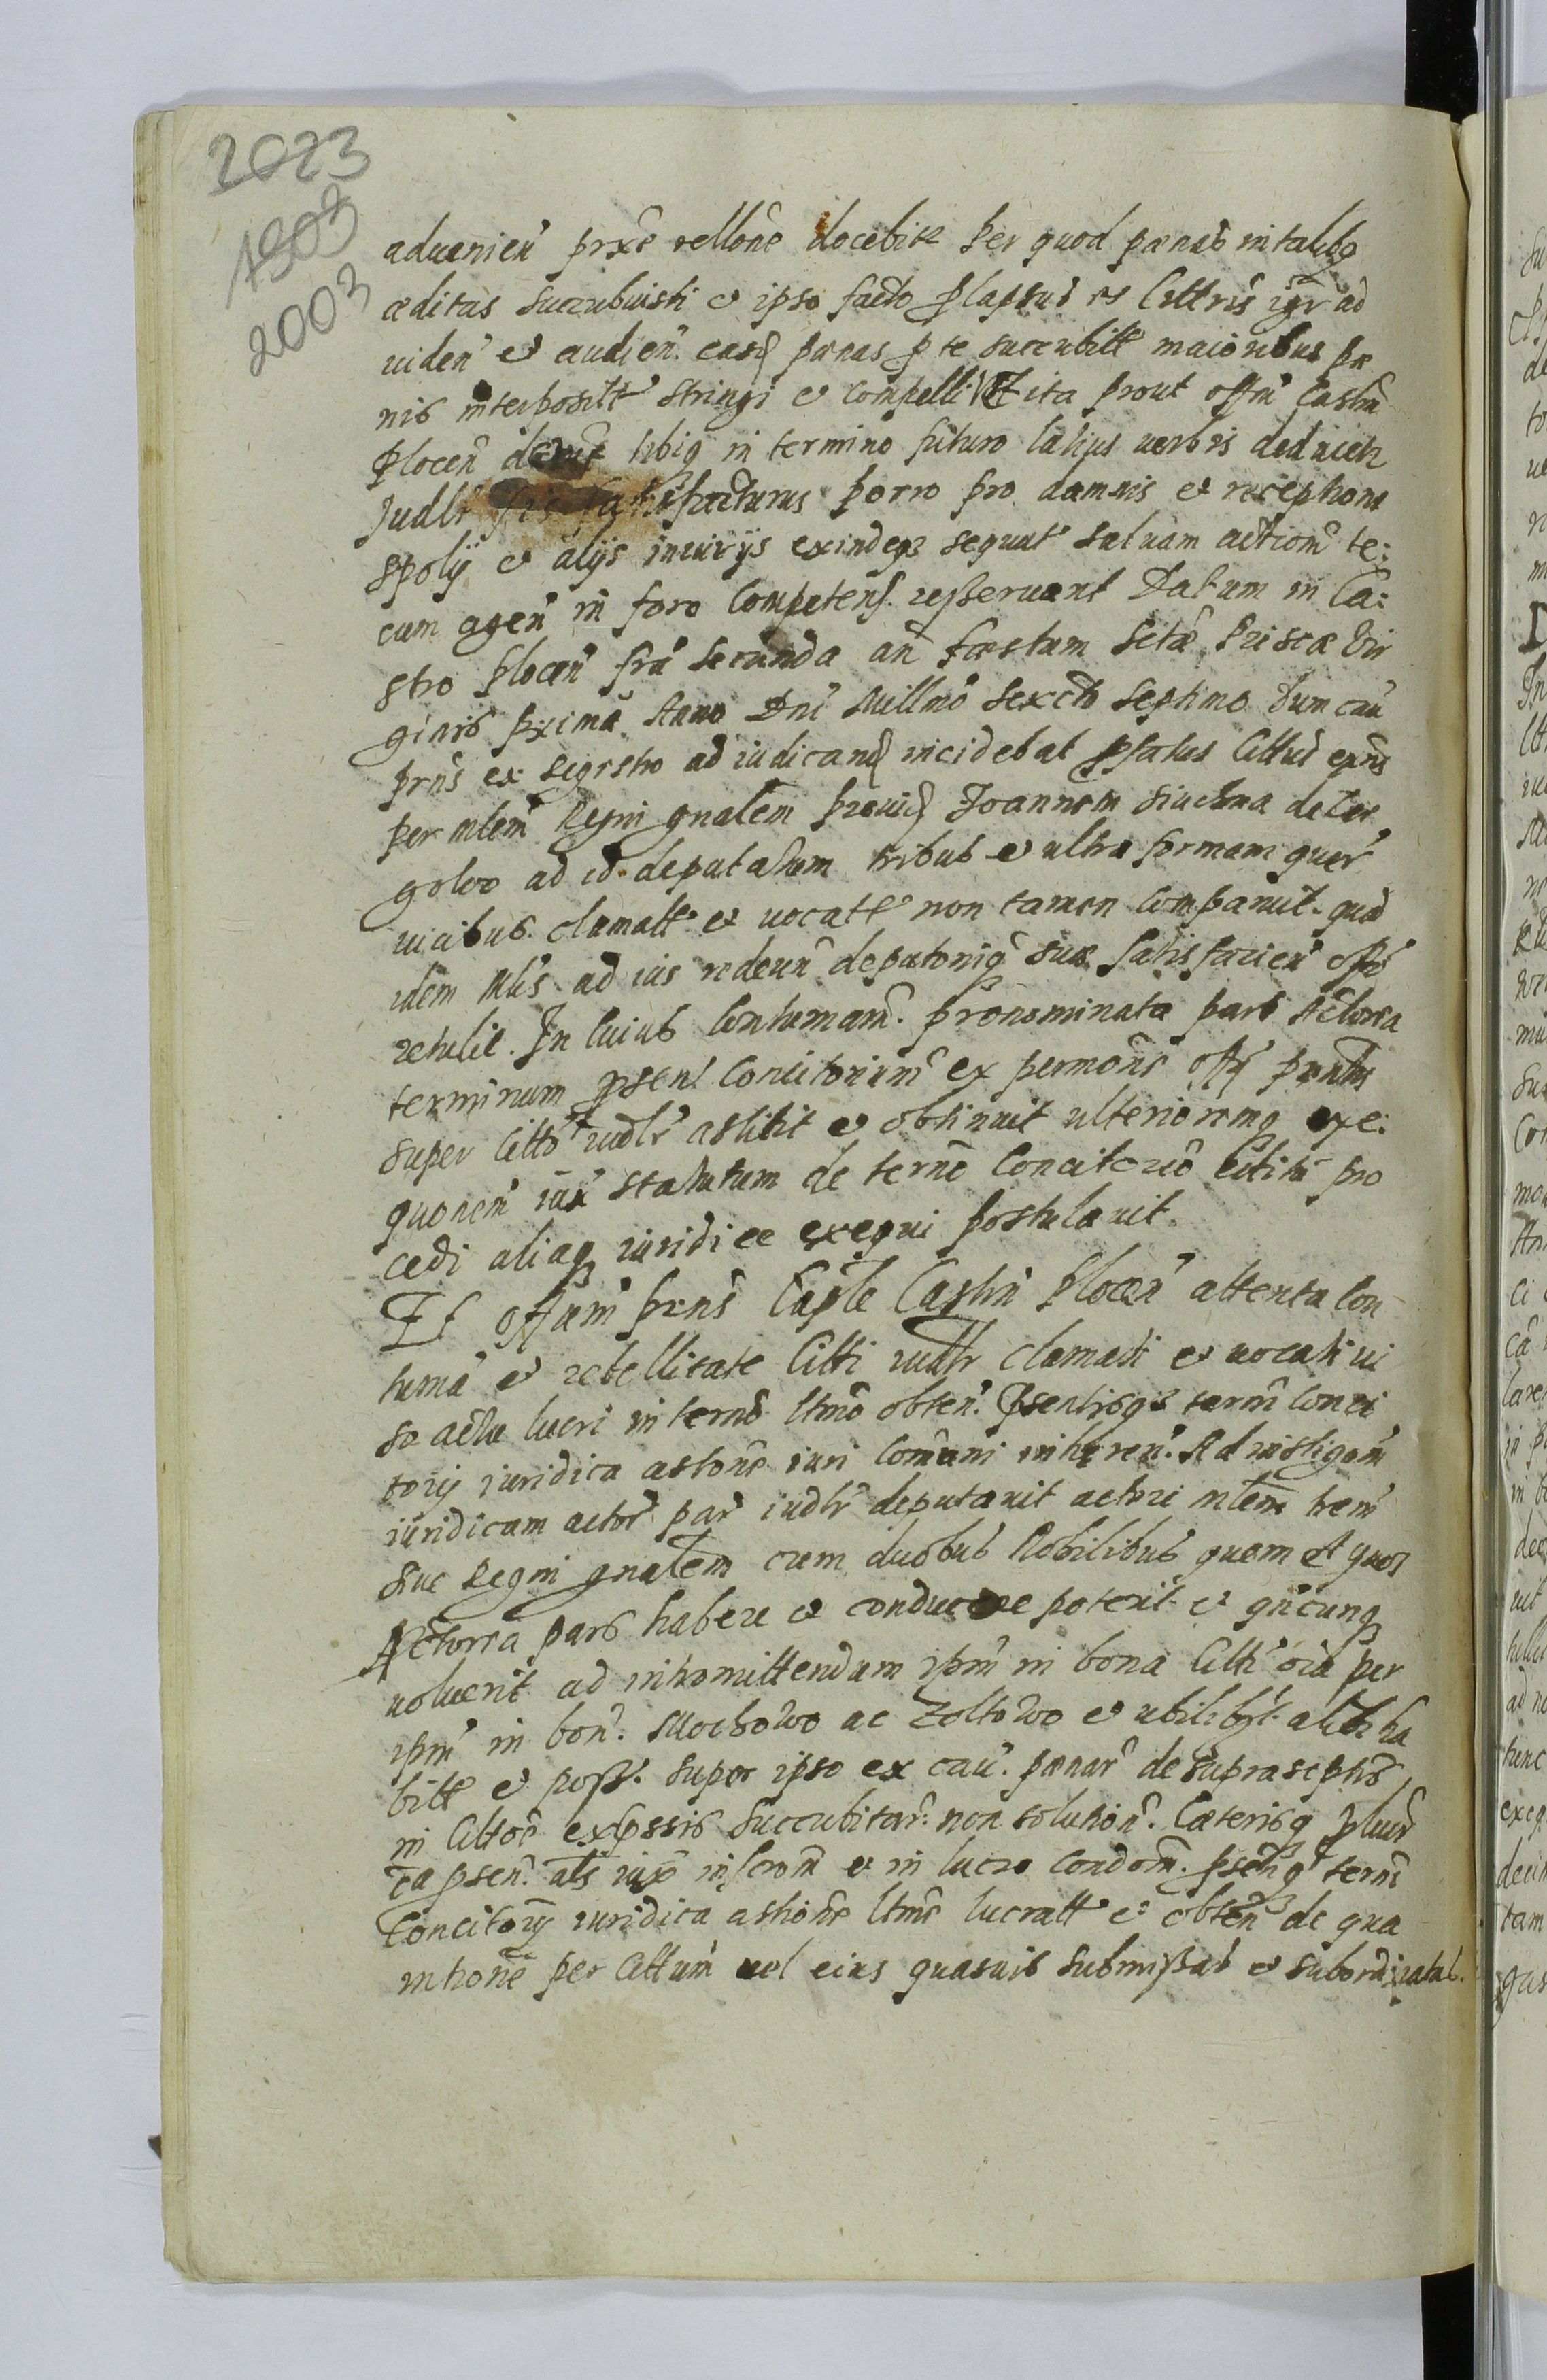 2023
1503
2003
aduenien prxe rellone docebitr Per quod paenas in talibq
aeditas succubuisti et ipso facto plapsus es Citteris igr ad
uiden et audien. easq paenas p te succubitt maioribus pae
nis interpositt stringi et compelli Et ita prout offm Castrn
Plocen tibiq in termino futuro latius uerbis deducetr
Judlr satisfacturus porro pro damnis et receptione
spolij et alijs iniurijs exindeqз sequut saluam actiom te:
cum agen in foro Competens. resseruant Datum in Ca:
stro Plocen fra secunda an faestum Sctae Priscae Vir
ginis pxima Anno Dni Millmo Sexcto Septimo Dum cau
prns ex regrstro ad iudicandq incidebat pfatus Cittus
per mlem Regni gnalem prouidq Joannem Siuchna de Cor
golwo ad id deputatum tribus et ultra formam quer
uicibus clamatt et uocatt non tamen Comparuit quod
idem Mlis ad ius redeun deputoniq suae satisfacien offo
retulit. In Cuius Contumam. prenominata pars Actorea
terminum psent Concitorium ex permone offi prntis
super Citto iudlr astitit et obtinuit ulterioremq exe:
quonem iux statutum de termo Concitorio Cititi pro
cedi aliaq iuridice exequi postulauit.
Et offum prns Caple Castrn Plocen attenta Con
tuma et rebellitate Citti iudlr clamati et uocati ui
so actu lucri in termo ltmo obten. Psentisqз term Conci
torij iuridica astone iuri Comuni inhaeren. Ad instigom
iuridicam actor par iudlr deputauit actori mlem trem
siue Regni gnalem cum duobus Nobilibus quem et quos
Actorea pars habere et conducere poterit et qncunq
uoluerit ad intromittendum ipm in bona Citti oia per
ipm in bon. Mochowo ac Zoltowo et ubilibt alibi ha
bitt et poss. super ipso ex cau. paenar de suprascptis
in Cittoe expssis succubitar. non solution. Caeterisq
ca psen. als iux inscrom et in lucro Condom. psentiq termi
Concitorij iuridica astione ltme lucratt et obten de qua
introne per Cittum uel eius quasuis submissas et subordinatas.